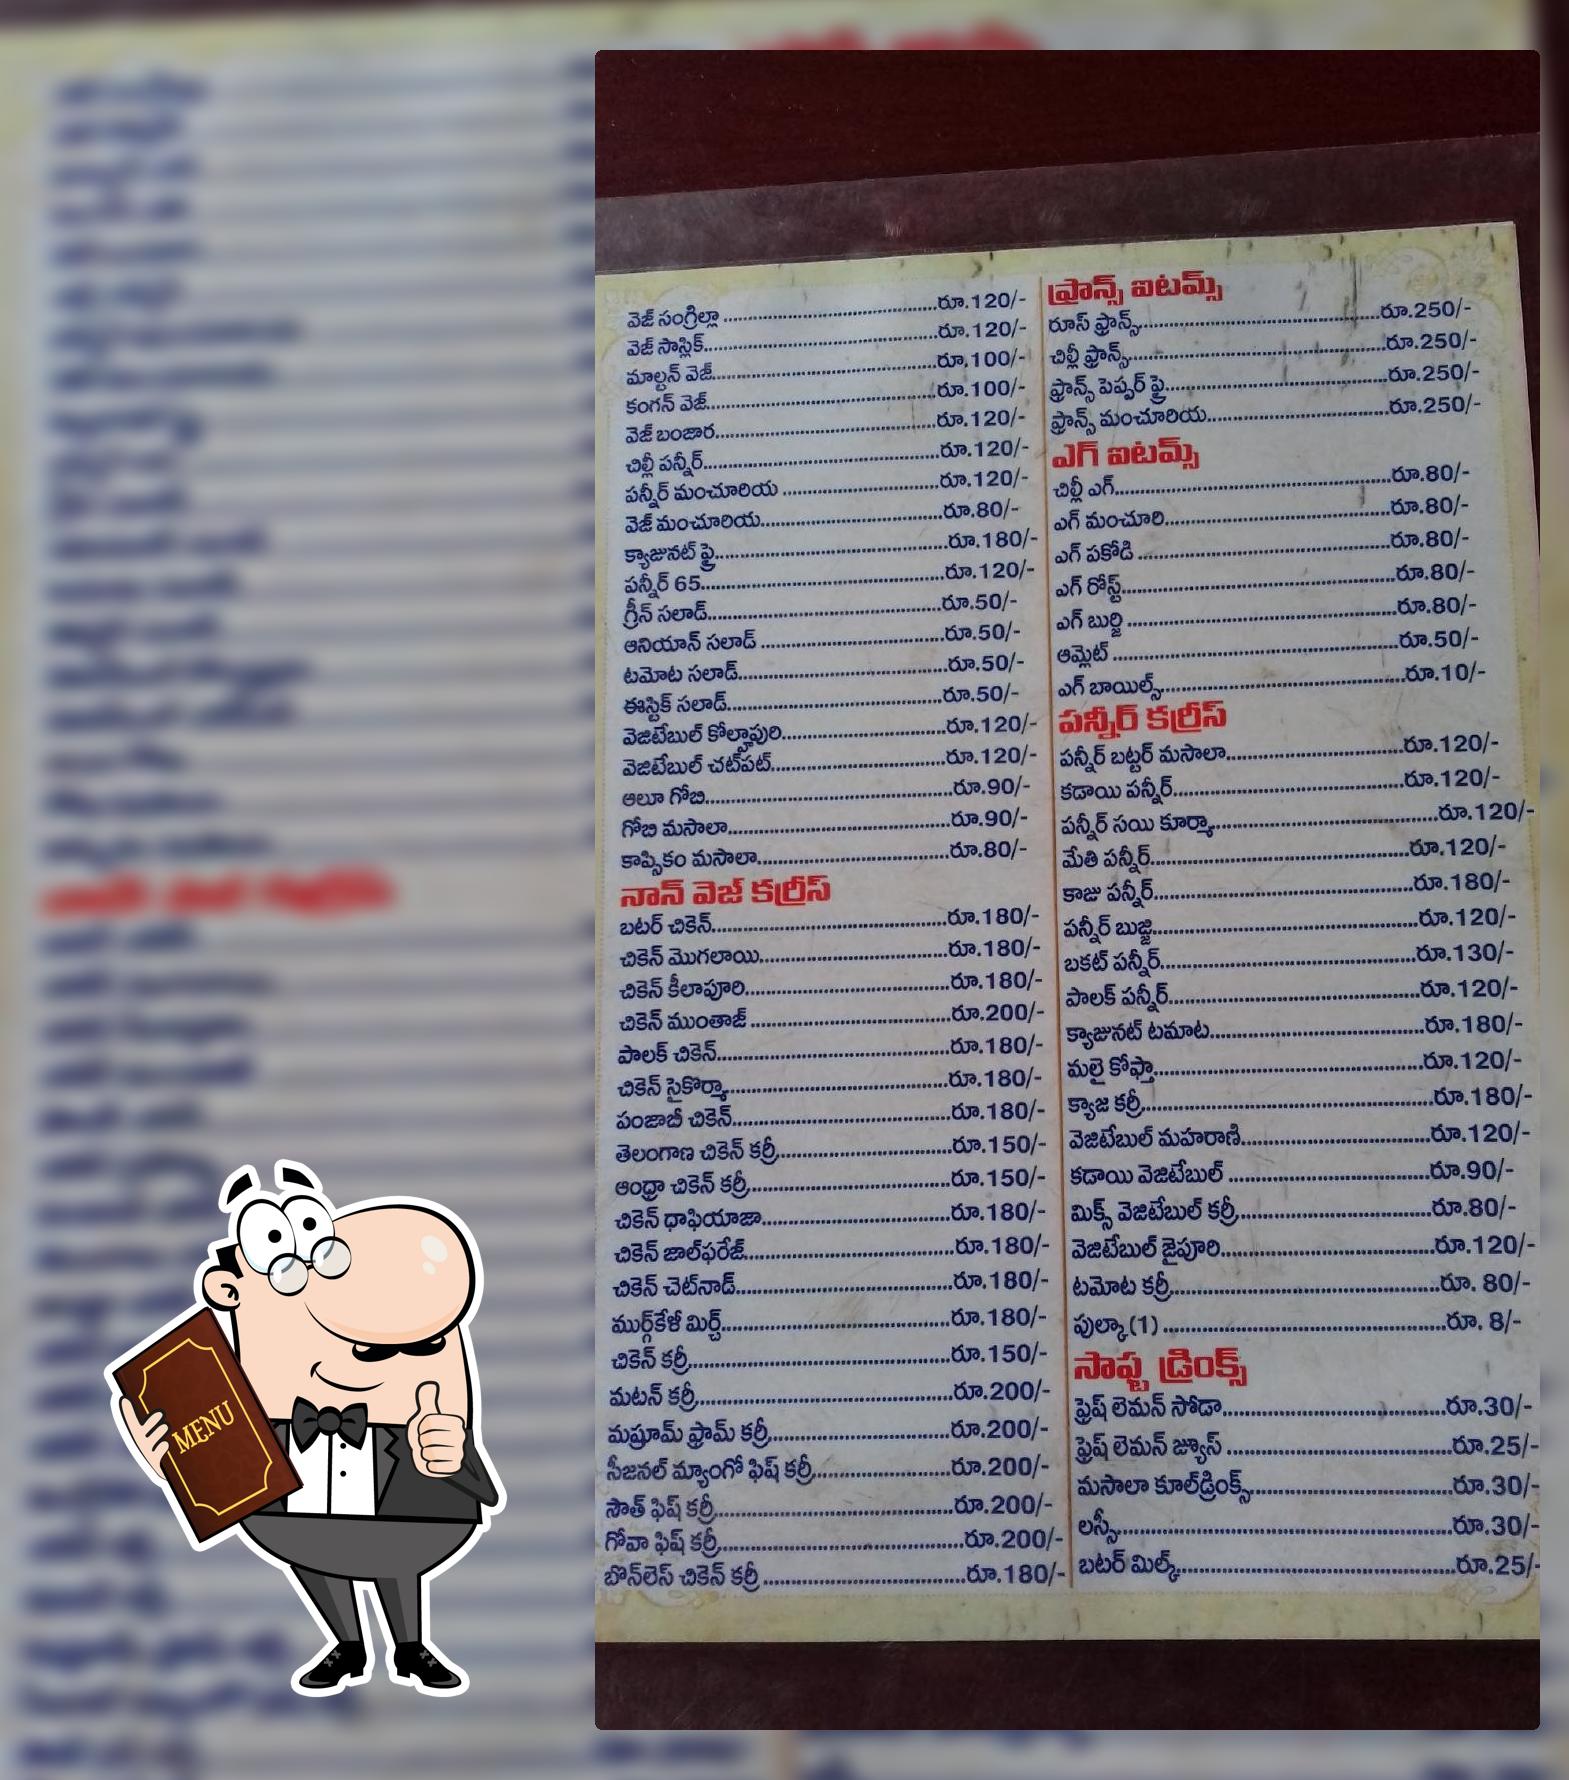 MENU
వెజ్ సంగ్రిల్లా ........రూ.120/-
వెజ్ సాస్లిక్........రూ.120/-
మాల్టన్ వెజ్........రూ.100/-
కంగన్ వెజ్........రూ.100/-
వెజ్ బంజార........రూ.120/-
చిల్లీ పన్నీర్........రూ.120/-
పన్నీర్ మంచూరియ ........రూ.120/-
వెజ్ మంచూరియ........రూ.80/-
క్యాజునట్ ఫ్రై........రూ.180/-
పన్నీర్ 65........రూ.120/-
గ్రీన్ సలాడ్........రూ.50/-
ఆనియాన్ సలాడ్ ........రూ.50/-
టమోట సలాడ్........రూ.50/-
ఈస్టిక్ సలాడ్........రూ.50/-
వెజిటేబుల్ కోల్హాపురి........రూ.120/-
వెజిటేబుల్ చట్‌పట్........రూ.120/-
ఆలూ గోబి........రూ.90/-
గోబి మసాలా........రూ.90/-
కాప్సికం మసాలా........రూ.80/-
నాన్ వెజ్ కర్రీస్
బటర్ చికెన్........రూ.180/-
చికెన్ మొగలాయి........రూ.180/-
చికెన్ కీలాపూరి........రూ.180/-
చికెన్ ముంతాజ్ ........రూ.200/-
పాలక్ చికెన్........రూ.180/-
చికెన్ సైకొర్మా........రూ.180/-
పంజాబీ చికెన్........రూ.180/-
తెలంగాణ చికెన్ కర్రీ........రూ.150/-
ఆంధ్రా చికెన్ కర్రీ........రూ.150/-
చికెన్ ధాఫియాజా........రూ.180/-
చికెన్ జాల్‌ఫరేజ్........రూ.180/-
చికెన్ చెట్‌నాడ్........రూ.180/-
ముర్గ్‌కేళీ మిర్చ్........రూ.180/-
చికెన్ కర్రీ........రూ.150/-
మటన్ కర్రీ........రూ.200/-
మష్రూమ్ ఫ్రామ్ కర్రీ........రూ.200/-
సీజనల్ మ్యాంగో ఫిష్ కర్రీ........రూ.200/-
సౌత్ ఫిష్ కర్రీ........రూ.200/-
గోవా ఫిష్ కర్రీ........రూ.200/-
బొన్‌లెస్ చికెన్ కర్రీ ........రూ.180/-
ఫ్రాన్స్ ఐటమ్స్
రూస్ ఫ్రాన్స్........రూ.250/-
చిల్లీ ఫ్రాన్స్........రూ.250/-
ఫ్రాన్స్ పెప్పర్ ఫ్రై........రూ.250/-
ఫ్రాన్స్ మంచూరియ........రూ.250/-
ఎగ్ ఐటమ్స్
చిల్లీ ఎగ్........రూ.80/-
ఎగ్ మంచూరి........రూ.80/-
ఎగ్ పకోడి ........రూ.80/-
ఎగ్ రోస్ట్........రూ.80/-
ఎగ్ బుర్జి ........రూ.80/-
ఆమ్లెట్ ........రూ.50/-
ఎగ్ బాయిల్స్........రూ.10/-
పన్నీర్ కర్రీస్
పన్నీర్ బట్టర్ మసాలా........రూ.120/-
కడాయి పన్నీర్........రూ.120/-
పన్నీర్ సయి కూర్మా........రూ.120/-
మేతి పన్నీర్........రూ.120/-
కాజు పన్నీర్........రూ.180/-
పన్నీర్ బుజ్జి........రూ.120/-
బకట్ పన్నీర్........రూ.130/-
పాలక్ పన్నీర్........రూ.120/-
క్యాజునట్ టమాట........రూ.180/-
మలై కోఫ్తా........రూ.120/-
క్యాజ కర్రీ........రూ.180/-
వెజిటేబుల్ మహరాణి........రూ.120/-
కడాయి వెజిటేబుల్ ........రూ.90/-
మిక్స్ వెజిటేబుల్ కర్రీ........రూ.80/-
వెజిటేబుల్ జైపూరి........రూ.120/-
టమోట కర్రీ........రూ. 80/-
పుల్కా(1) ........రూ. 8/-
సాఫ్ట్ డ్రింక్స్
ఫ్రెష్ లెమన్ సోడా........రూ.30/-
ఫ్రెష్ లెమన్ జ్యూస్ ........రూ.25/-
మసాలా కూల్‌డ్రింక్స్........రూ.30/-
లస్సీ........రూ.30/-
బటర్ మిల్క్........రూ.25/-